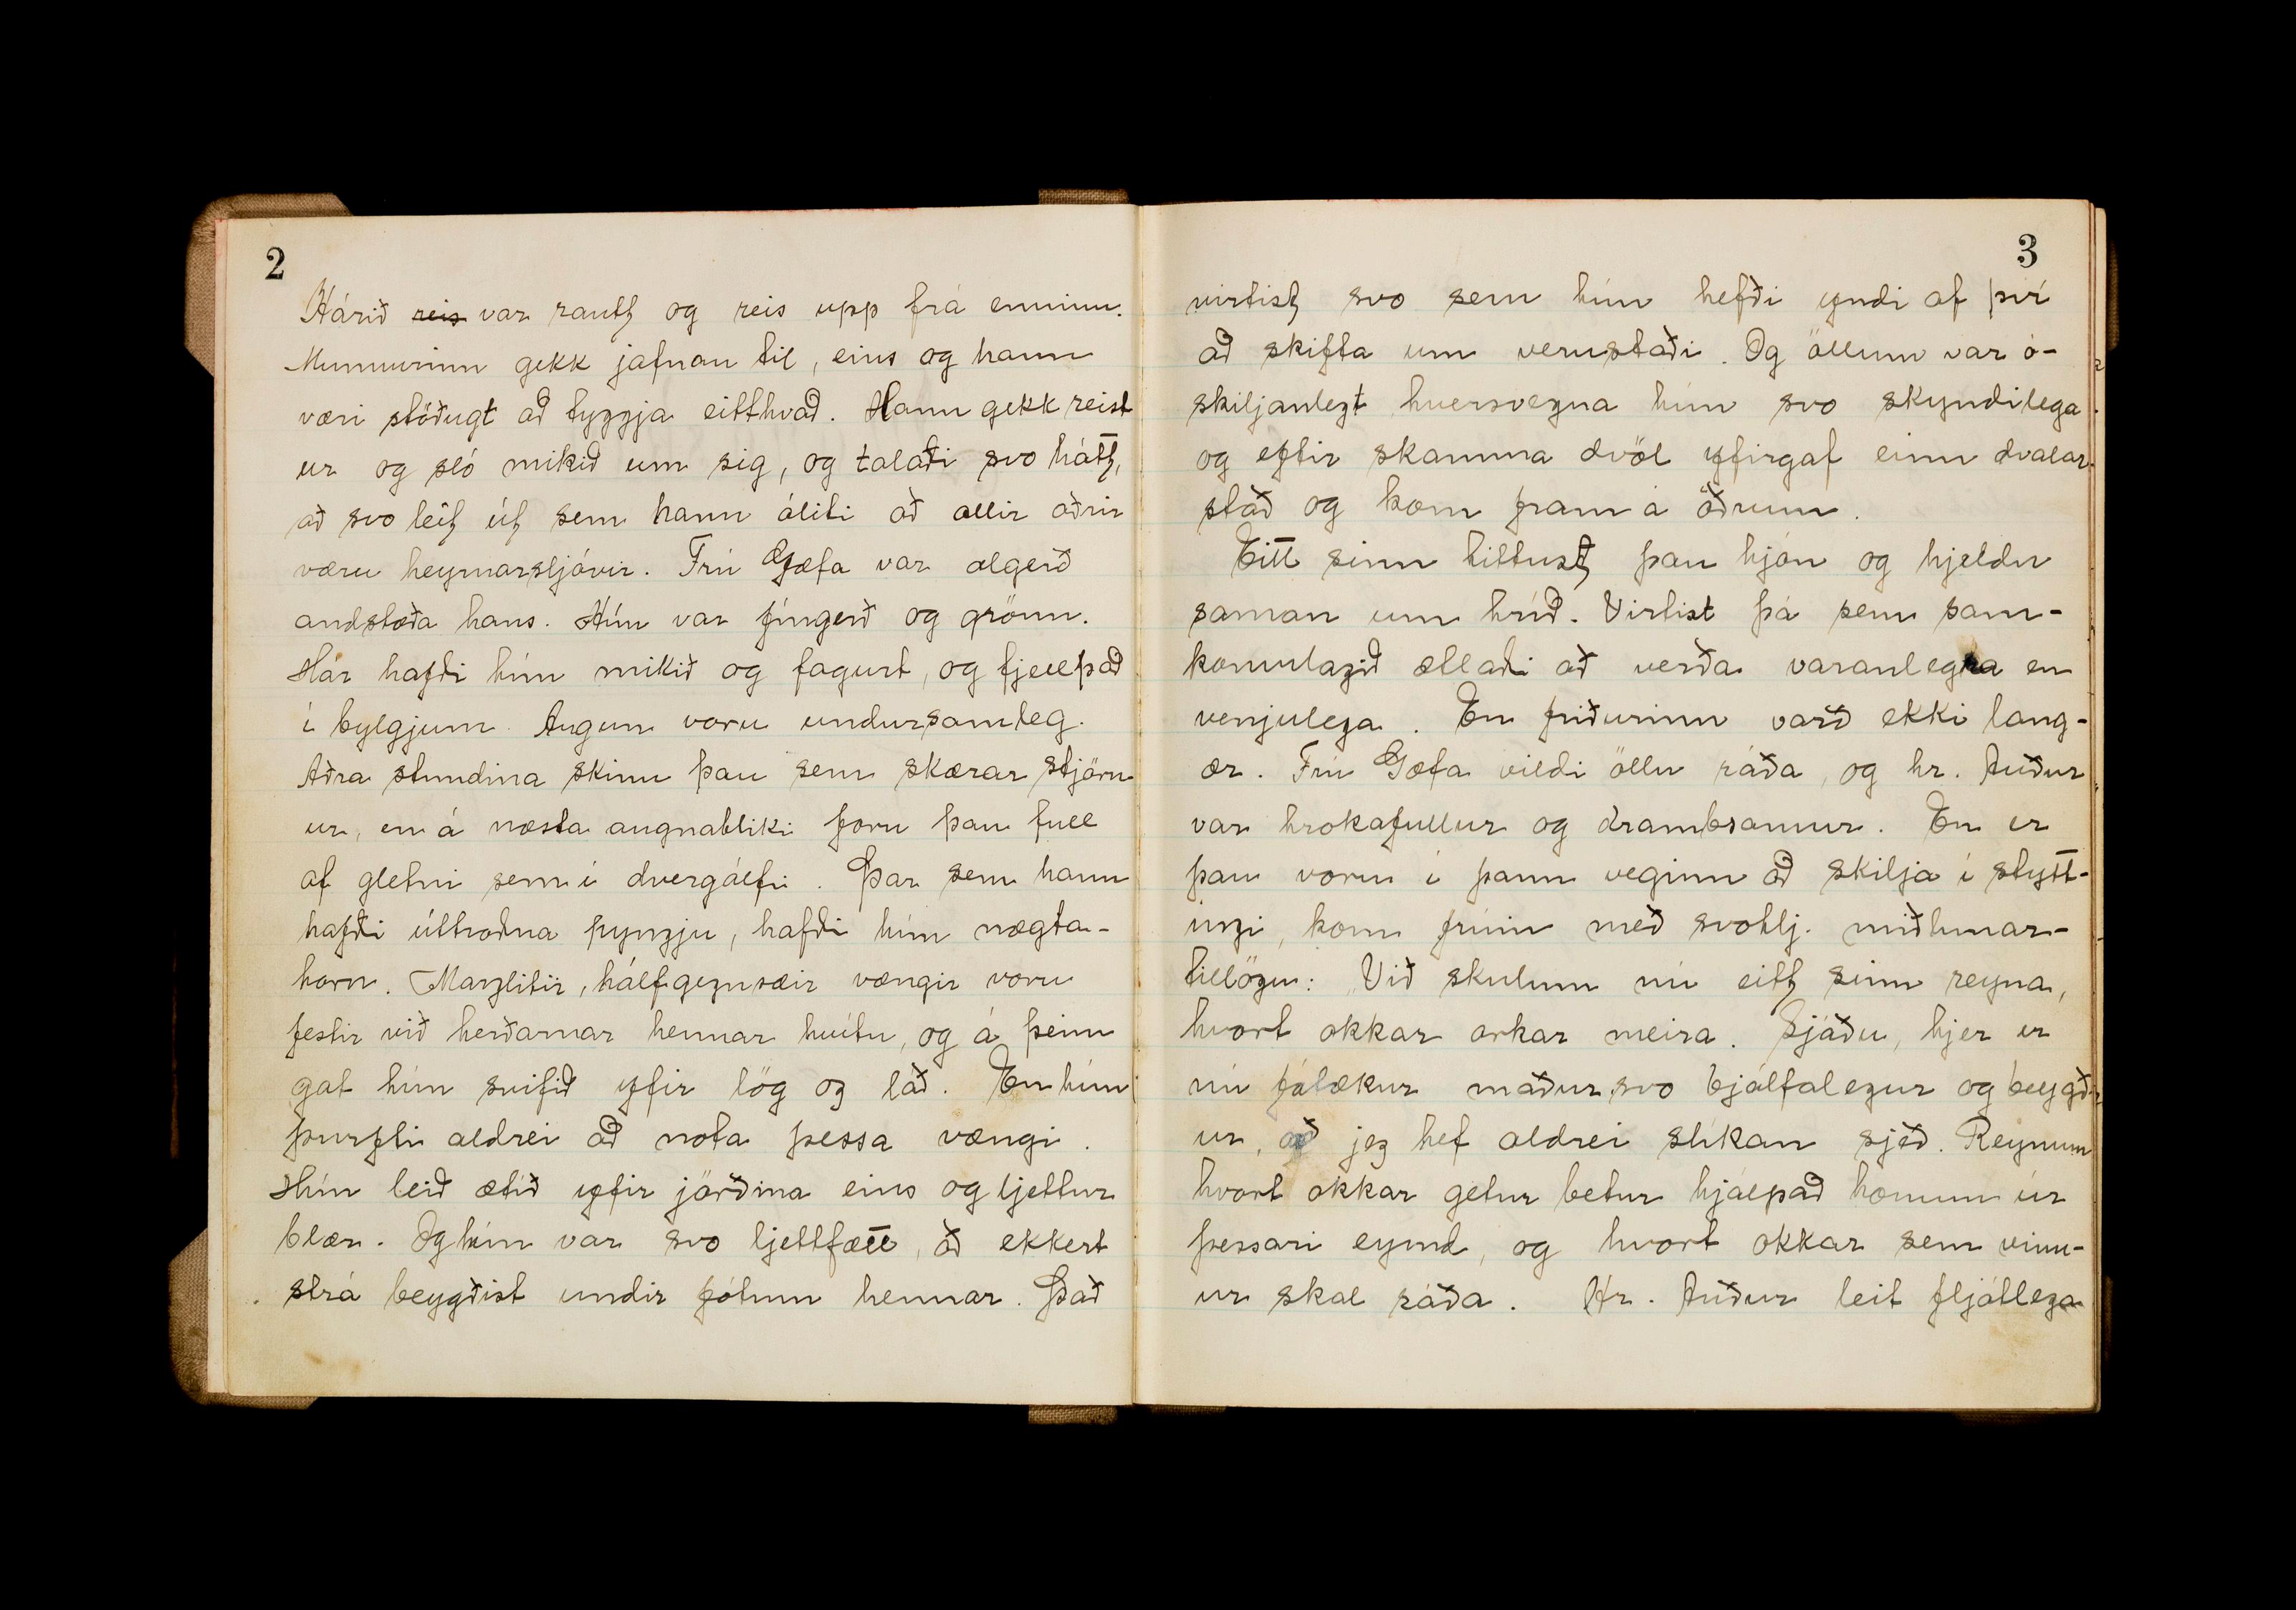 2
Hárið reis var rautt og reis upp frá enninu.
Munnurinn gekk jafnan til, eins og hann
væri stöðugt að tyggja eitthvað. Hann gekk reist
ur og sló mikið um sig, og talaði svo hátt,
að svo leit út sem hann áliti að allir aðrir
væru heyrnarsljóvir. Frú Gæfa var algerð
andstæða hans. Hún var fíngerð og grönn.
Hár hafði hún mikið og fagurt, og fjell það
í bylgjum. Augun voru undursamleg.
Aðra stundina skinu þau sem skærar stjörn
ur, en á næsta augnabliki foru þau full
af gletni sem í dvergálfi. Þar sem hann
hafði úttroðna pyngju, hafði hún nægta-
horn. Marglitir, hálfgegnsæir vængir voru
festir við herðarnar hennar hvítu, og á þeim
gat hún svifið yfir lög og láð. En hún
þurfti aldrei að nota þessa vængi.
Hún leið ætíð yfir jörðina eins og ljettur
blær. Og hún var svo ljettfætt, að ekkert
strá beygðist undir fótum hennar. Það
3
virtist svo sem hún hefði yndi af því
að skifta um verustaði. Og öllum var ó-
skiljanlegt hversvegna hún svo skyndilega
og eftir skamma dvöl yfirgaf einn dvalar-
stað og kom fram á öðrum.
Eitt sinn hittust þau hjón og hjeldu
saman um hríð. Virtist þá sem sam-
komulagið ætlaði að verða varanlegra en
venjulega. En friðurinn varð ekki lang-
ær. Frú Gæfa vildi öllu ráða, og hr. Auður
var hrokafullur og drambsamur. En er
þau voru í þann veginn að skilja í stytt-
ingi, kom frúin með svohlj. miðlunar-
tillögu: Við skulum nú eitt sinn reyna,
hvort okkar orkar meira. Sjáðu, hjer er
nú fátækur maður, svo bjálfalegur og beygð-
ur, að jeg hef aldrei slíkan sjeð. Reynum
hvort okkar getur betur hjálpað honum úr
þessari eymd, og hvort okkar sem vinn-
ur skal ráða. Hr. Auður leit fljótlega